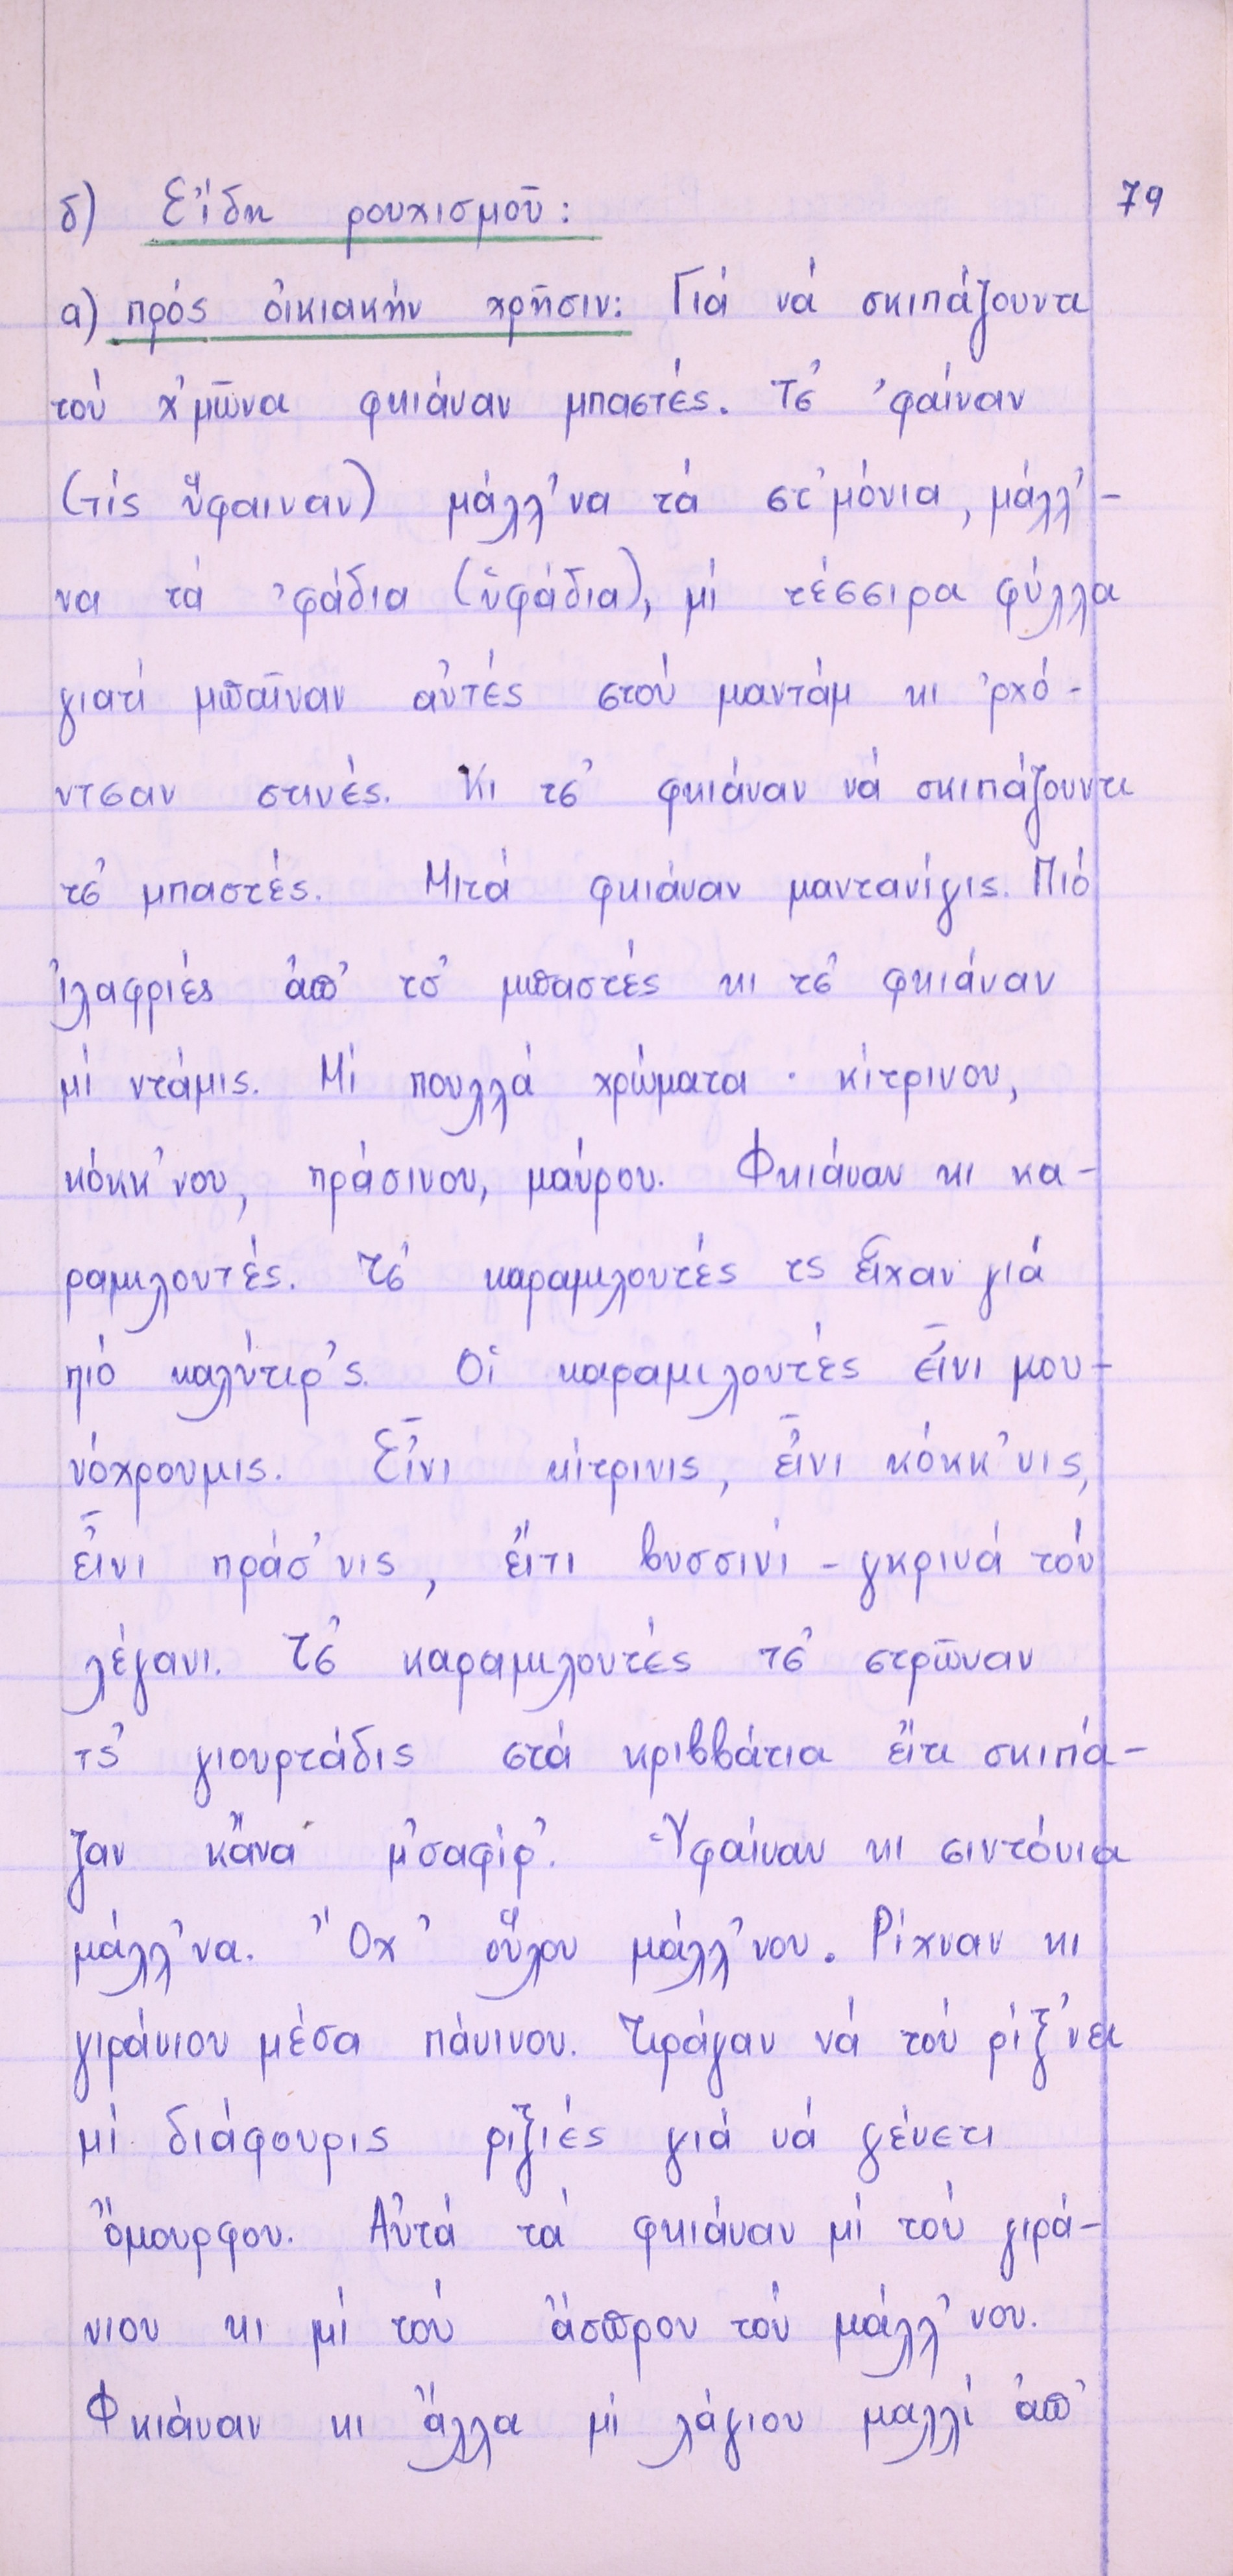 79
β) Εἴδη ρουχισμοῦ:
α) πρός οἰκιακήν χρῆσιν: Γιά νά σκιπάζουντι
τού χ'μῶνα φκιάναν μπαστές. Τσ' 'φαίναν
(τίς ὕφαιναν) μάλλ'να τά στ'μόνια, μάλλ'-
να τά 'φάδια (ὑφάδια), μί τέσσιρα φύλλα
γιατί μπαῖναν αὐτές στού μαντάμ κι 'ρχό-
ντσαν στινές. Κι τσ' φκιάναν νά σκιπάζουντι
τσ' μπαστές. Μιτά φκιάναν μαντανίγις. Πιό
'λαφριές ἀπ' τσ' μπαστές κι τσ' φκιάναν
μί ντάμις. Μί πουλλά χρώματα· κίτρινου,
κόκκ'νου, πράσινου, μαύρου. Φκιάναν κι κα-
ραμιλουτές. Τσ' καραμιλουτές τς εἶχαν γιά
πιό καλύτιρ'ς. Οἱ καραμιλουτές εἶνι μου-
νόχρουμις. Εἶνι κίτρινις, εἶνι κόκκ'νις,
εἶνι πράσ'νις, εἴτι βυσσινί - γκρινά τού
λέγανι. Τσ' καραμιλουτές τσ' στρῶναν
τς' γιουρτάδις στά κριββάτια εἴτι σκιπά-
ζαν κἄνα μ'σαφίρ'. Ὑφαίναν κι σιντόνια
μάλλ'να. Ὄχ' οὕλου μάλλ'νου. Ρίχναν κι
γιράνιου μέσα πάνινου. Τιράγαν νά τού ρίξ'νει
μί διάφουρις ριξιές γιά νά γένετι
ὄμουρφου. Αὐτά τά φκιάναν μί τού γιρά-
νιου κι μί τού ἄσπρου τού μάλλ'νου.
Φκιάναν κι ἄλλα μί λάγιου μαλλί ἀπ'